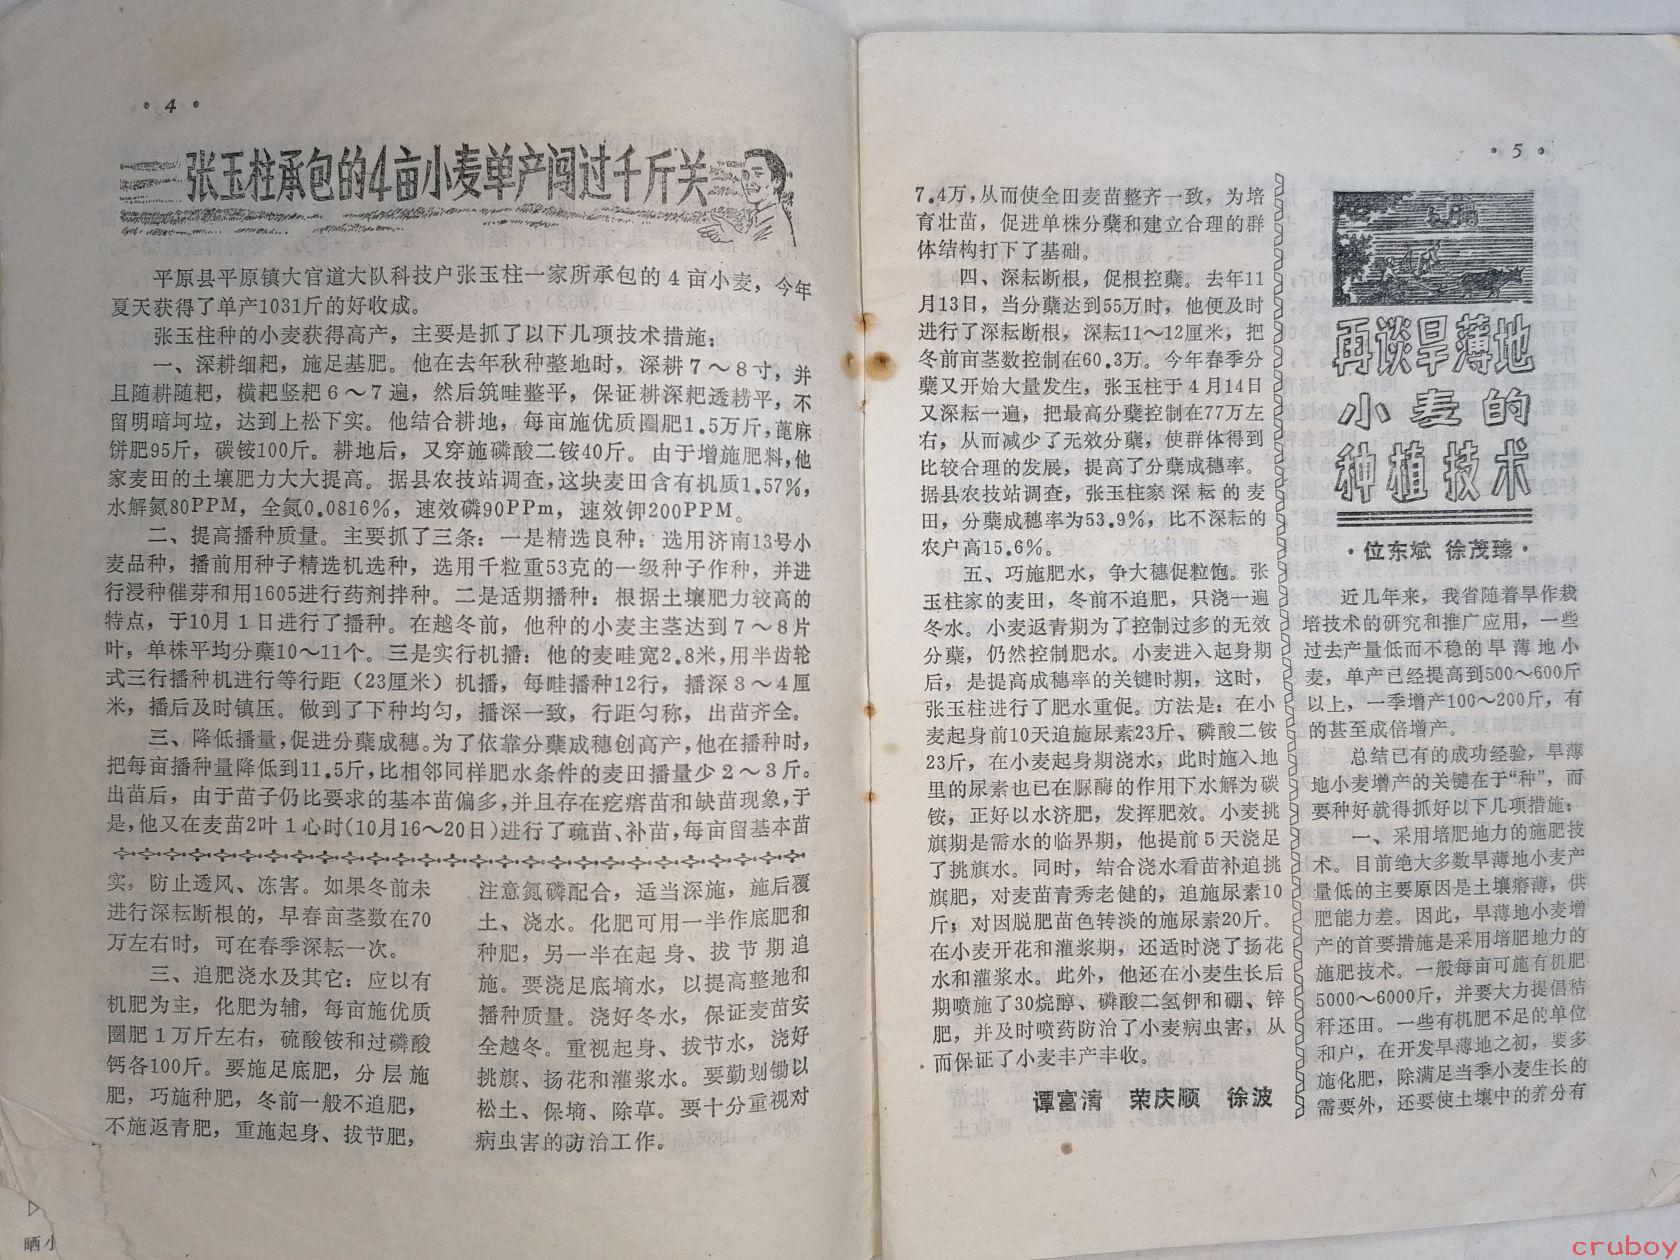 · 4 ·
张玉柱承包的4亩小麦单产闯过千斤关
平原县平原镇大官道大队科技户张玉柱一家所承包的4亩小麦，今年
夏天获得了单产1031斤的好收成。
张玉柱种的小麦获得高产，主要是抓了以下几项技术措施：
一、深耕细耙，施足基肥。他在去年秋种整地时，深耕7～8寸，并
且随耕随耙，横耙竖耙6～7遍，然后筑畦整平，保证耕深耙透耢平，不
留明暗坷垃，达到上松下实。他结合耕地，每亩施优质圈肥1.5万斤，蓖麻
饼肥95斤，碳铵100斤。耕地后，又穿施磷酸二铵40斤。由于增施肥料，他
家麦田的土壤肥力大大提高。据县农技站调查，这块麦田含有机质1.57%，
水解氮80PPM，全氮0.0816%，速效磷90PPm，速效钾200PPM。
二、提高播种质量。主要抓了三条：一是精选良种：选用济南13号小
麦品种，播前用种子精选机选种，选用千粒重53克的一级种子作种，并进
行浸种催芽和用1605进行药剂拌种。二是适期播种：根据土壤肥力较高的
特点，于10月1日进行了播种。在越冬前，他种的小麦主茎达到7～8片
叶，单株平均分蘖10～11个。三是实行机播：他的麦畦宽2.8米，用半齿轮
式三行播种机进行等行距（23厘米）机播，每畦播种12行，播深3～4厘
米，播后及时镇压。做到了下种均匀，播深一致，行距匀称，出苗齐全。
三、降低播量，促进分蘖成穗。为了依靠分蘖成穗创高产，他在播种时，
把每亩播种量降低到11.5斤，比相邻同样肥水条件的麦田播量少2～3斤。
出苗后，由于苗子仍比要求的基本苗偏多，并且存在疙瘩苗和缺苗现象，于
是，他又在麦苗2叶1心时(10月16～20日)进行了疏苗、补苗，每亩留基本苗
实，防止透风、冻害。如果冬前未
进行深耘断根的，早春亩茎数在70
万左右时，可在春季深耘一次。
三、追肥浇水及其它：应以有
机肥为主，化肥为辅，每亩施优质
圈肥1万斤左右，硫酸铵和过磷酸
钙各100斤。要施足底肥，分层施
肥，巧施种肥，冬前一般不追肥，
不施返青肥，重施起身、拔节肥，
注意氮磷配合，适当深施，施后覆
土、浇水。化肥可用一半作底肥和
种肥，另一半在起身、拔节期追
施。要浇足底墒水，以提高整地和
播种质量。浇好冬水，保证麦苗安
全越冬。重视起身、拔节水，浇好
挑旗、扬花和灌浆水。要勤划锄以
松土、保墒、除草。要十分重视对
病虫害的防治工作。
晒小
· 5 ·
7.4万，从而使全田麦苗整齐一致，为培
育壮苗，促进单株分蘖和建立合理的群
体结构打下了基础。
四、深耘断根，促根控蘖。去年11
月13日，当分蘖达到55万时，他便及时
进行了深耘断根，深耘11～12厘米，把
冬前亩茎数控制在60.3万。今年春季分
蘖又开始大量发生，张玉柱于4月14日
又深耘一遍，把最高分蘖控制在77万左
右，从而减少了无效分蘖，使群体得到
比较合理的发展，提高了分蘖成穗率。
据县农技站调查，张玉柱家深耘的麦
田，分蘖成穗率为53.9%，比不深耘的
农户高15.6%。
五、巧施肥水，争大穗促粒饱。张
玉柱家的麦田，冬前不追肥，只浇一遍
冬水。小麦返青期为了控制过多的无效
分蘖，仍然控制肥水。小麦进入起身期
后，是提高成穗率的关键时期，这时，
张玉柱进行了肥水重促。方法是：在小
麦起身前10天追施尿素23斤、磷酸二铵
23斤，在小麦起身期浇水，此时施入地
里的尿素也已在脲酶的作用下水解为碳
铵，正好以水济肥，发挥肥效。小麦挑
旗期是需水的临界期，他提前5天浇足
了挑旗水。同时，结合浇水看苗补追挑
旗肥，对麦苗青秀老健的，追施尿素10
斤；对因脱肥苗色转淡的施尿素20斤。
在小麦开花和灌浆期，还适时浇了扬花
水和灌浆水。此外，他还在小麦生长后
期喷施了30烷醇、磷酸二氢钾和硼、锌
肥，并及时喷药防治了小麦病虫害，从
而保证了小麦丰产丰收。
谭富清 荣庆顺 徐波
再谈旱薄地
小麦的
种植技术
·位东斌 徐茂臻·
近几年来，我省随着旱作栽
培技术的研究和推广应用，一些
过去产量低而不稳的旱薄地小
麦，单产已经提高到500～600斤
以上，一季增产100～200斤，有
的甚至成倍增产。
总结已有的成功经验，旱薄
地小麦增产的关键在于“种”，而
要种好就得抓好以下几项措施：
一、采用培肥地力的施肥技
术。目前绝大多数旱薄地小麦产
量低的主要原因是土壤瘠薄，供
肥能力差。因此，旱薄地小麦增
产的首要措施是采用培肥地力的
施肥技术。一般每亩可施有机肥
5000～6000斤，并要大力提倡秸
秆还田。一些有机肥不足的单位
和户，在开发旱薄地之初，要多
施化肥，除满足当季小麦生长的
需要外，还要使土壤中的养分有
cruboy